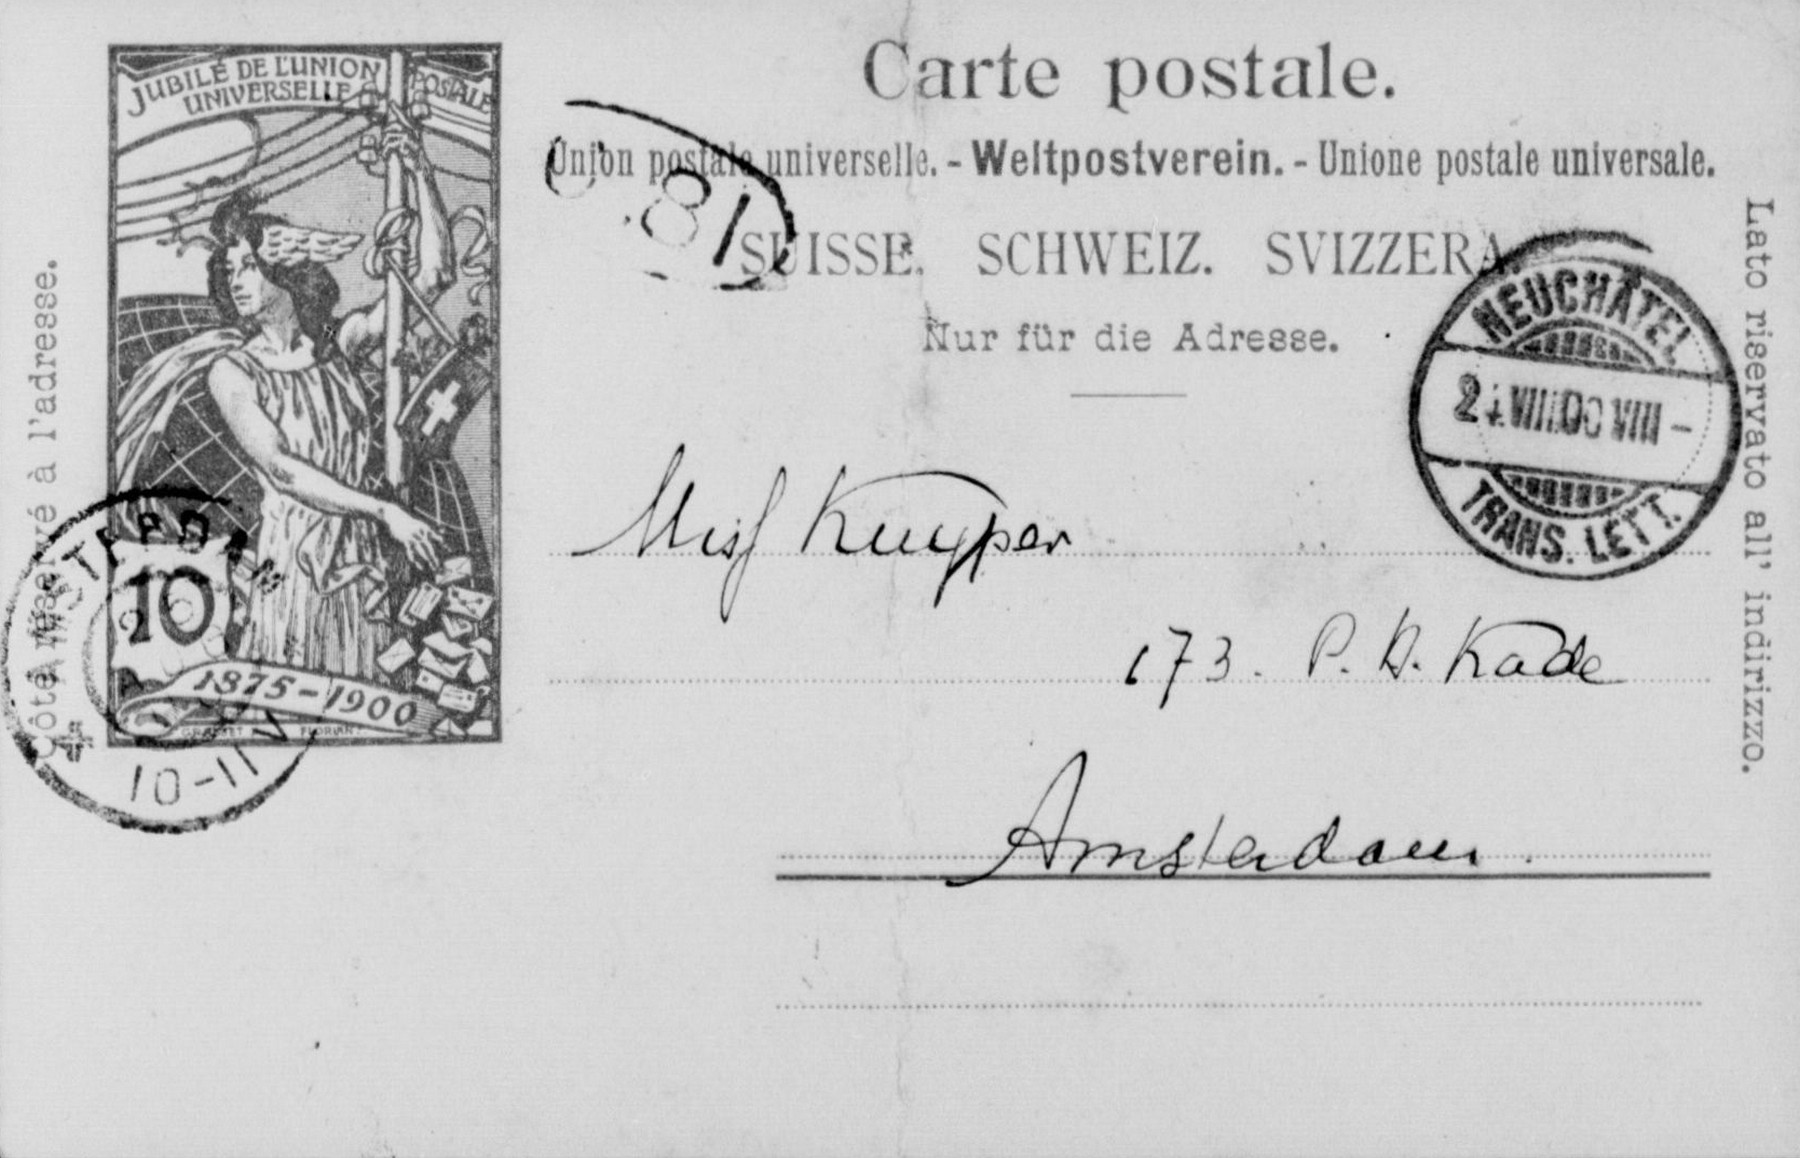 JUBILÉ DE L'UNION POSTALE
UNIVERSELLE
10
1875-1900
GRASSET FLORIAN
Carte postale.
Union postale universelle. - Weltpostverein. - Unione postale universale.
SUISSE. SCHWEIZ. SVIZZERA.
Nur für die Adresse.
Côté réservé à l'adresse.
Lato riservato all' indirizzo.
NEUCHÂTEL
VIII.00 VIII -
TRANS. LETT.
Miss Kuyper
173. P. H. Kade
Amsterdam.
AMSTERDAM
10-11V